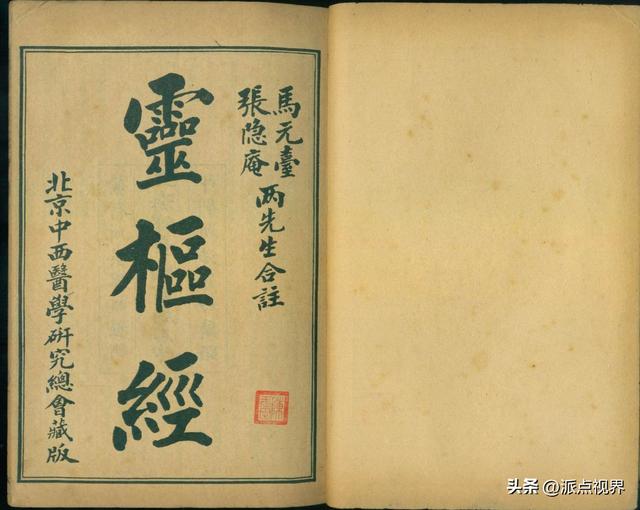 馬元臺
張隐庵
两先生合註
靈樞經
北京中西醫學研究總會藏版
头条 @派点视界